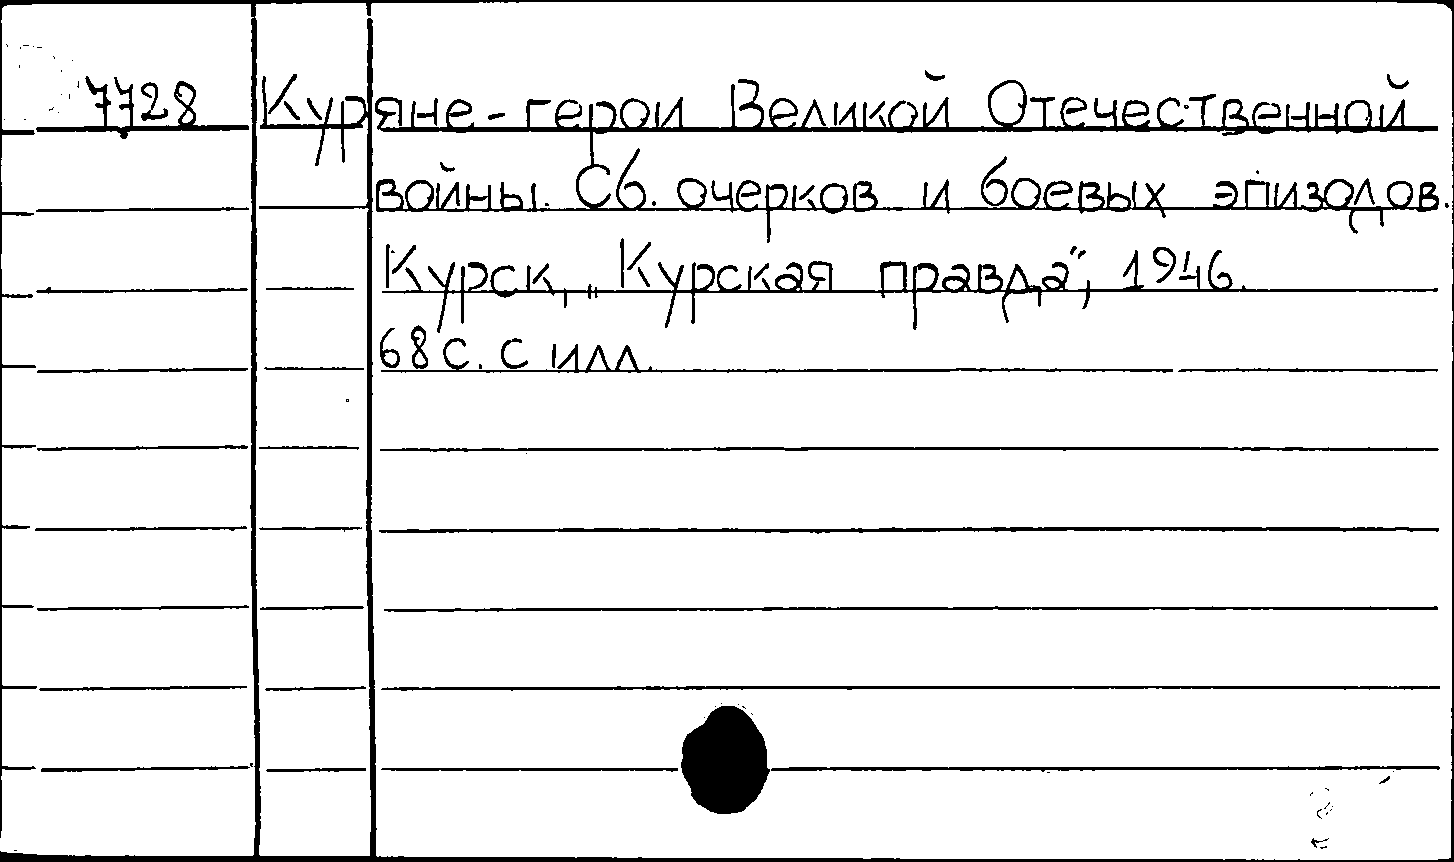 7728 Куряне - герои Великой Отечественной
войны. Сб. очерков и боевых эпизодов.
Курск, „Курская правда", 1946.
68 с. с илл.